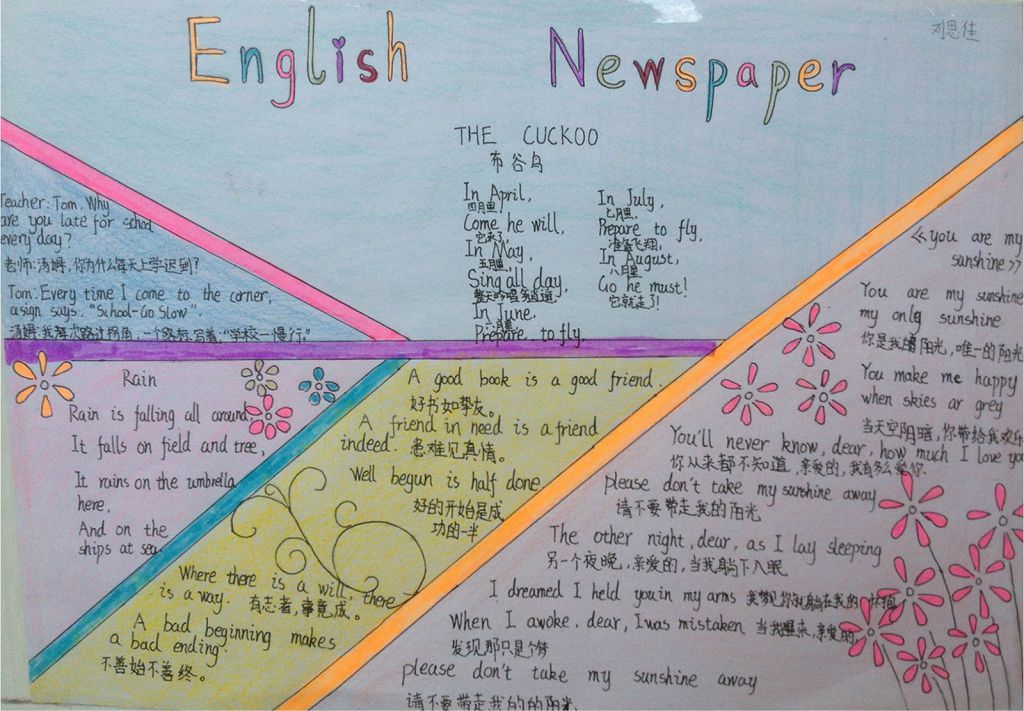 English Newspaper
刘思佳
THE CUCKOO
布谷鸟
In April,
四月里,
Come he will,
它来了,
In May,
五月里,
Sing all day,
整天吟唱
In June,
六月里,
Prepare to fly.
In July,
七月里,
Prepare to fly,
准备飞翔,
In August,
八月里
Go he must!
它就走了!
Teacher: Tom, Why
are you late for school
every day?
老师:汤姆,你为什么每天上学迟到?
Tom: Every time I come to the corner,
a sign says, "School-Go Slow".
汤姆:我每次路过拐角,一个路标写着:"学校-慢行."
Rain
Rain is falling all around,
It falls on field and tree,
It rains on the umbrella
here,
And on the
ships at sea.
A good book is a good friend.
好书如挚友。
A friend in need is a friend
indeed. 患难见真情。
Well begun is half done
好的开始是成
功的一半
Where there is a will, there
is a way. 有志者,事竟成。
A bad beginning makes
a bad ending.
不善始不善终。
《you are my
sunshine》
You are my sunshine
my only sunshine
你是我的阳光,唯一的阳光
You make me happy
when skies ar grey
当天空阴暗,你带给我欢乐
You'll never know, dear, how much I love you
你从来都不知道,亲爱的,我有多么爱你.
please don't take my sunshine away
请不要带走我的阳光
The other night, dear, as I lay sleeping
另一个夜晚,亲爱的,当我躺下入眠
I dreamed I held you in my arms 我梦见你就躺在我的怀抱
When I awoke, dear, I was mistaken 当我醒来,亲爱的,
发现那只是个梦
please don't take my sunshine away
请不要带走我的的阳光.